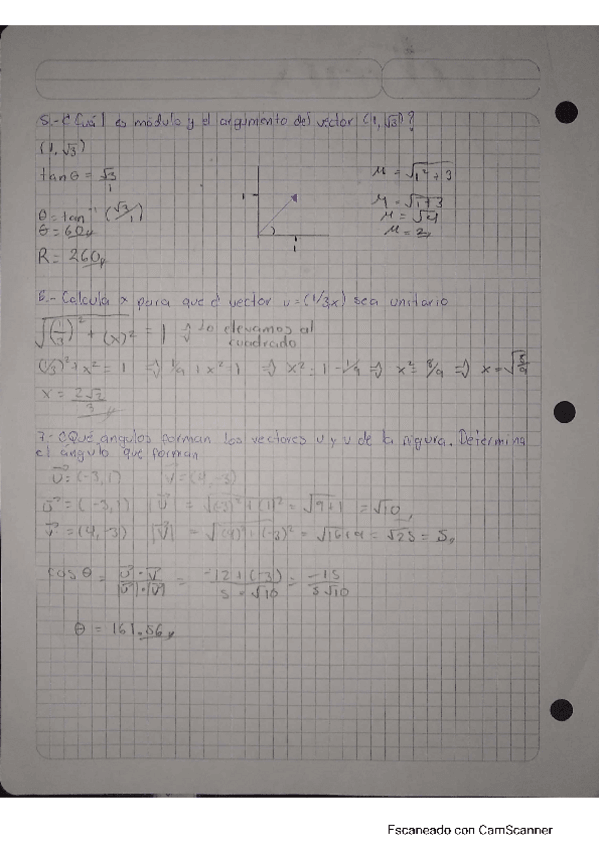 5.- ¿Cuál es módulo y el argumento del vector (1, √3)?
(1, √3)
tan θ = √3/1
θ = tan⁻¹ (√3/1)
θ = 60
R = 260
1
1
M = √1² + 3
M = √1+3
M = √4
M = 2
6.- Calcula x para que el vector u = (1/3, x) sea unitario
√(1/3)² + (x)² = 1 ⇒ lo elevamos al
cuadrado
(1/3)² + x² = 1 ⇒ 1/9 + x² = 1 ⇒ x² = 1 - 1/9 ⇒ x² = 8/9 ⇒ x = √8/9
x = 2√2/3
7.- ¿Qué angulos forman los vectores u y v de la figura. Determina
el angulo que forman
u = (-3, 1) v = (4, -3)
u = (-3, 1) |u| = √(-3)² + (1)² = √9+1 = √10
v = (4, -3) |v| = √(4)² + (-3)² = √16+9 = √25 = 5
cos θ = u · v / |u| · |v| = -12 + (-3) / 5 · √10 = -15 / 5√10
θ = 161.56
Escaneado con CamScanner